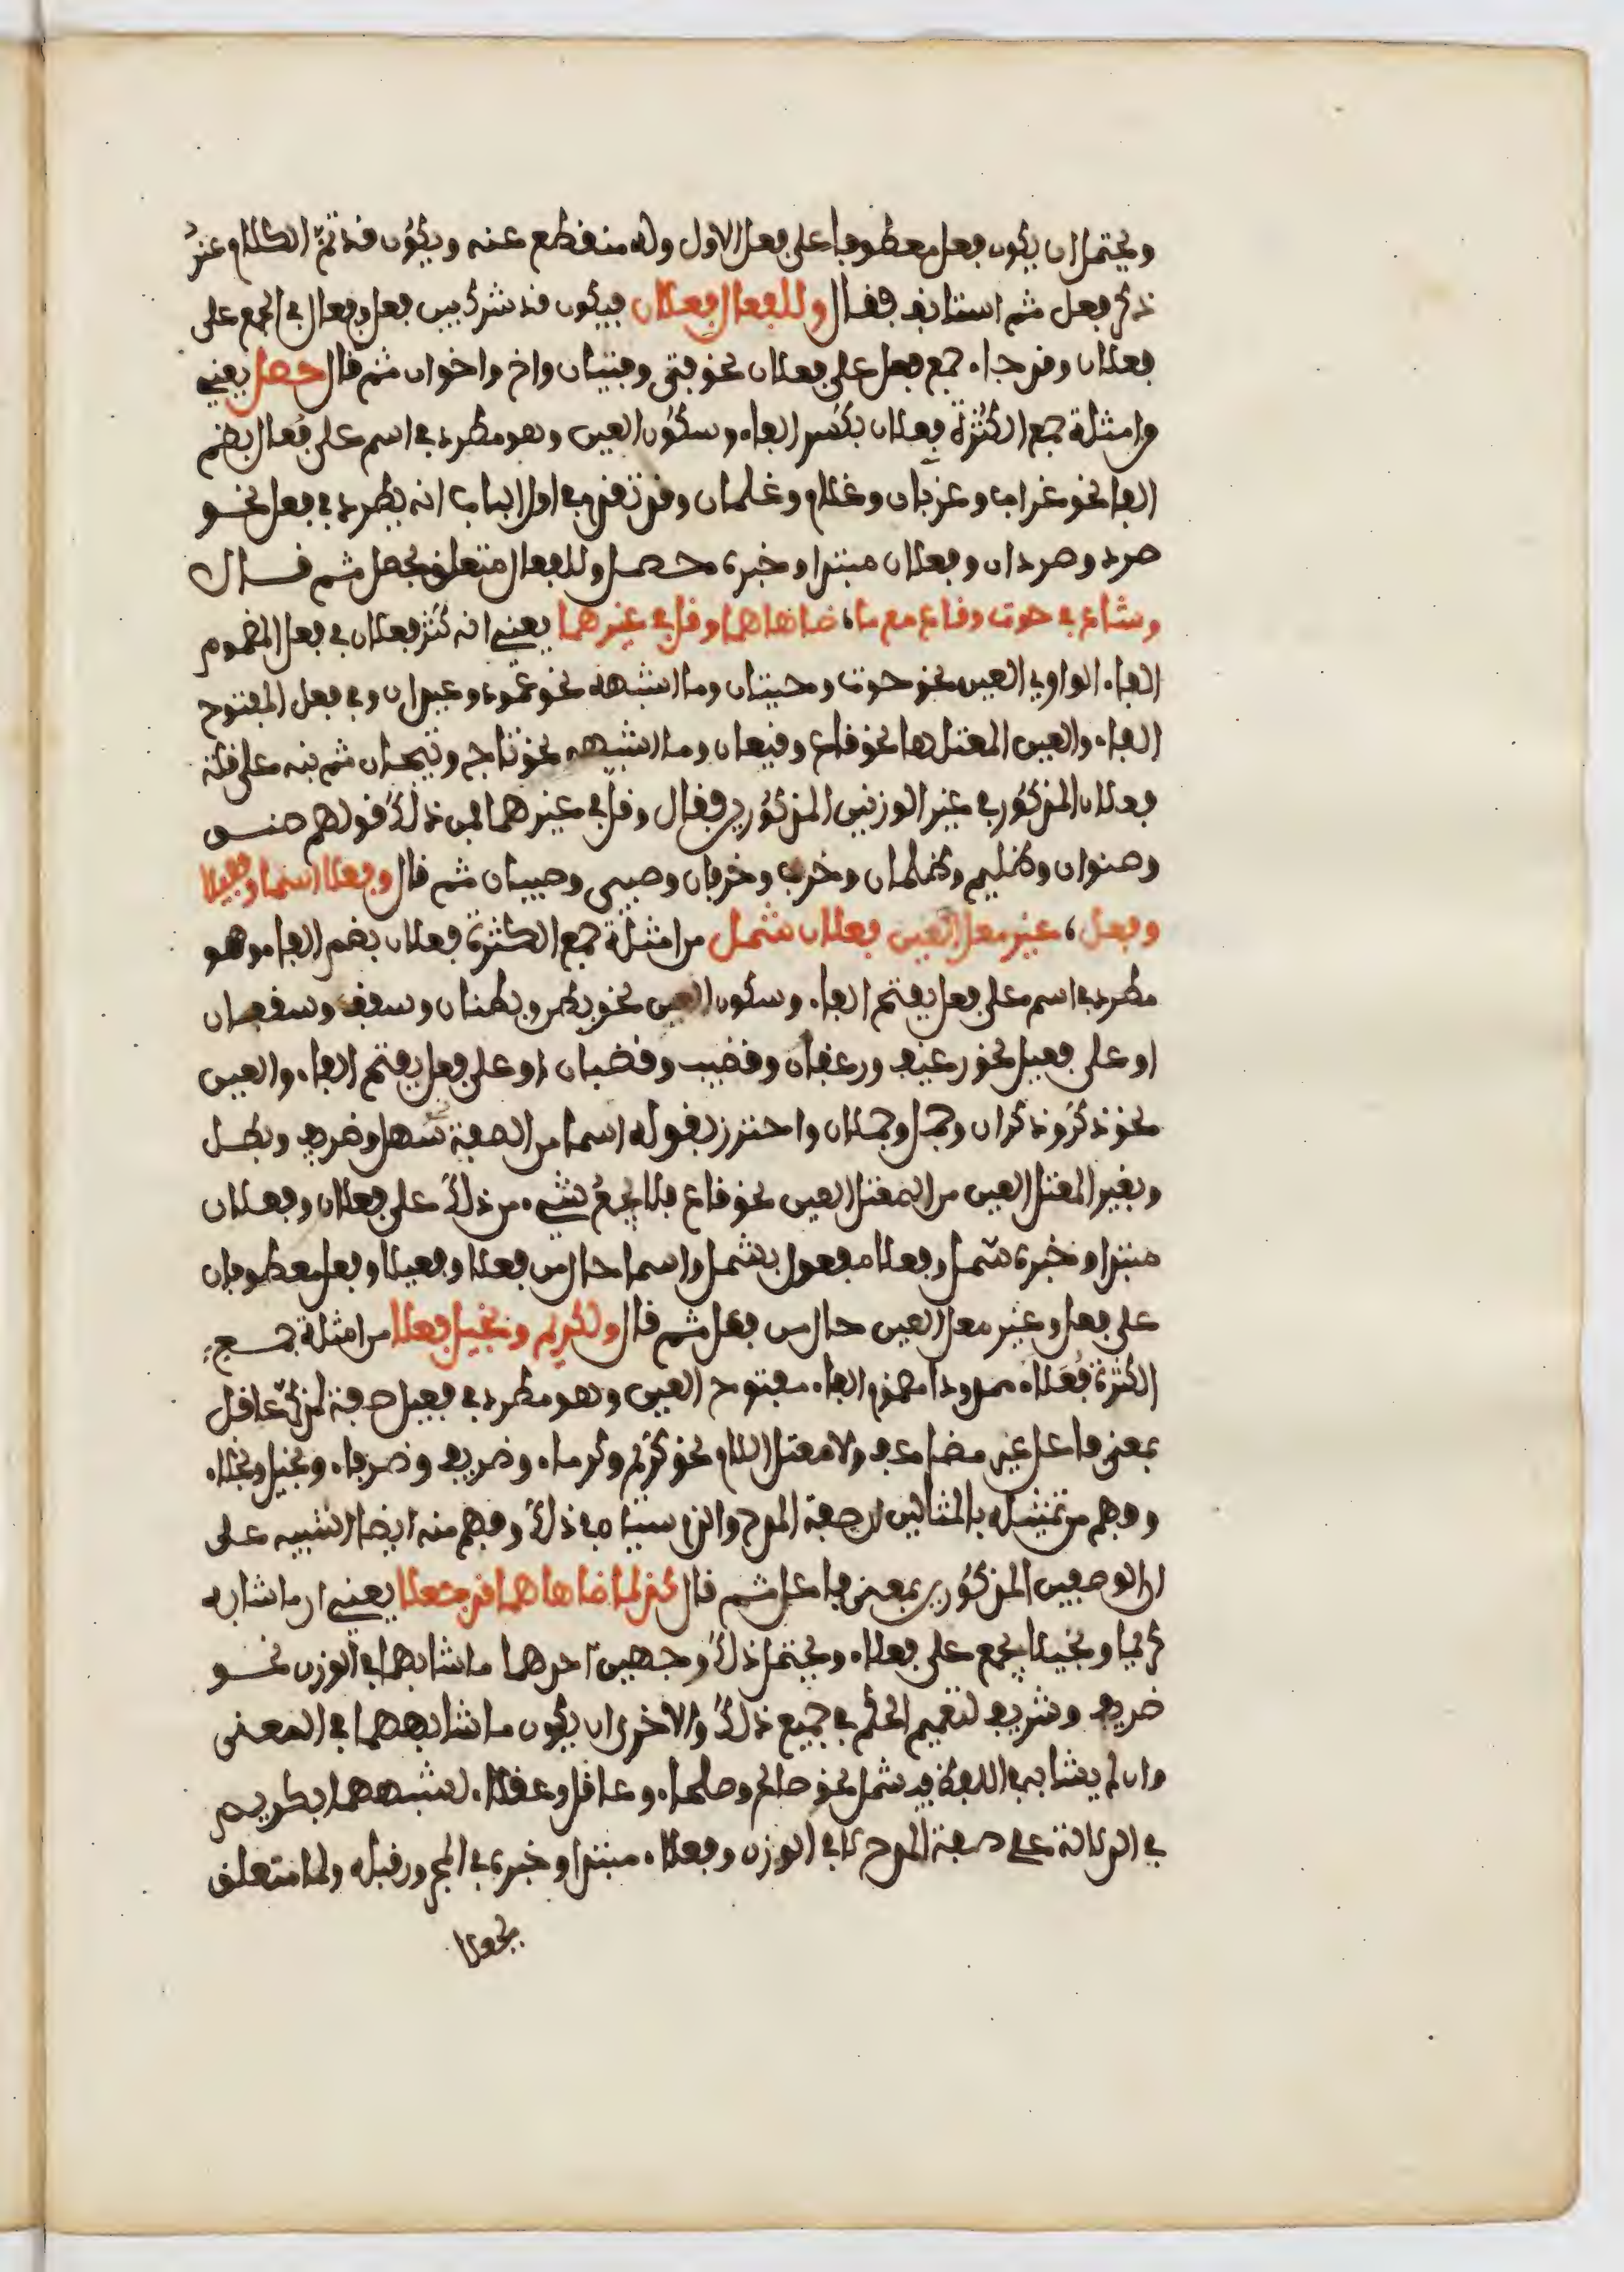 ويحتمل ان يكون فعل معطوفا على فعل الاول وله منقطع عنه ويكون قد تم الكلام عند
ذكر فعل ثم استانف فقال وللفعال فعلان فيكون قد شرك بين فعل وفعال في الجمع على
فعلان وقد جاء جمع فعل على فعلان نحو فتى وفتيان واخ واخوان ثم قال حصل يعني
من امثلة جمع الكثرة فعلان بكسر الفاء وسكون العين وهو مطرد في اسم على فعال بضم
الفا نحو غراب وغربان وغلام وغلمان وقد تقدم في اول الباب انه يطرد في فعل نحو
صرد وصردان وفعلان مبتدا وخبره حصل وللفعال متعلق بحصل ثم قال
وشاع في حوت وقاع مع ما، ضاهاهما وقل في غيرهما يعني انه كثر فعلان في فعل المضموم
الفاء الواوي العين نحو حوت وحيتان وما اشبهه نحو عود وعيدان وفي فعل المفتوح
الفاء والعين المعتلها نحو قاع وقيعان وما اشبهه نحو تاج وتيجان ثم نبه على قلة
فعلان المذكور في غير الوزنين المذكورين فقال وقل في غيرهما فمن ذلك قولهم صنو
وصنوان وظليم وظلمان وخرب وخربان وصبي وصبيان ثم قال وفعلا اسما وفعيلا
وفعل، غير معل العين فعلان شمل من امثلة جمع الكثرة فعلان بضم الفاء وهو
مطرد في اسم على فعل بفتح الفاء وسكون العين نحو بطن وبطنان وسقف وسقفان
او على فعيل نحو رغيف ورغفان وقضيب وقضبان او على فعل بفتح الفاء والعين
نحو ذكر وذكران وجمل وجملان واحترز بقوله اسما من الصفة سهل وظريف وبطل
وبغير المعتل العين من المعتل العين نحو قاع فلا يجمع شيء من ذلك على فعلان وفعلان
مبتدا وخبره شمل وفعلا مفعول بشمل واسما حال من فعلا وفعيلا وفعل معطوفان
على فعل وغير معل العين حال من فعل ثم قال ولكريم وبخيل فعلا من امثلة جمع
الكثرة فعلاء ممدودا مضموم الفاء مفتوح العين وهو مطرد في فعيل صفة لمذكر عاقل
بمعنى فاعل غير مضاعف ولا معتل اللام نحو كريم وكرماء وظريف وظرفاء وبخيل وبخلاء
وفهم من تمثيله بالمثالين ان صفة المدح والذم سيان في ذلك وفهم منه ايضا التنبيه على
ان الوصفين المذكورين بمعنى فاعل ثم قال كذا لما ضاهاهما قد جعلا يعني ان ما شابه
كريما وبخيلا يجمع على فعلاء ويحتمل ذلك وجهين احدهما ما شابهما في الوزن نحو
ظريف وشريف لتعميم الحكم في جميع ذلك والاخر ان يكون ما شابههما في المعنى
وان لم يشابه في اللفظ فيشمل نحو صالح وصلحاء وعاقل وعقلاء لشبههما بكريم
في الدلالة على صفة المدح لا في الوزن وفعلاء مبتدا وخبره في المجرور قبله ولما متعلق